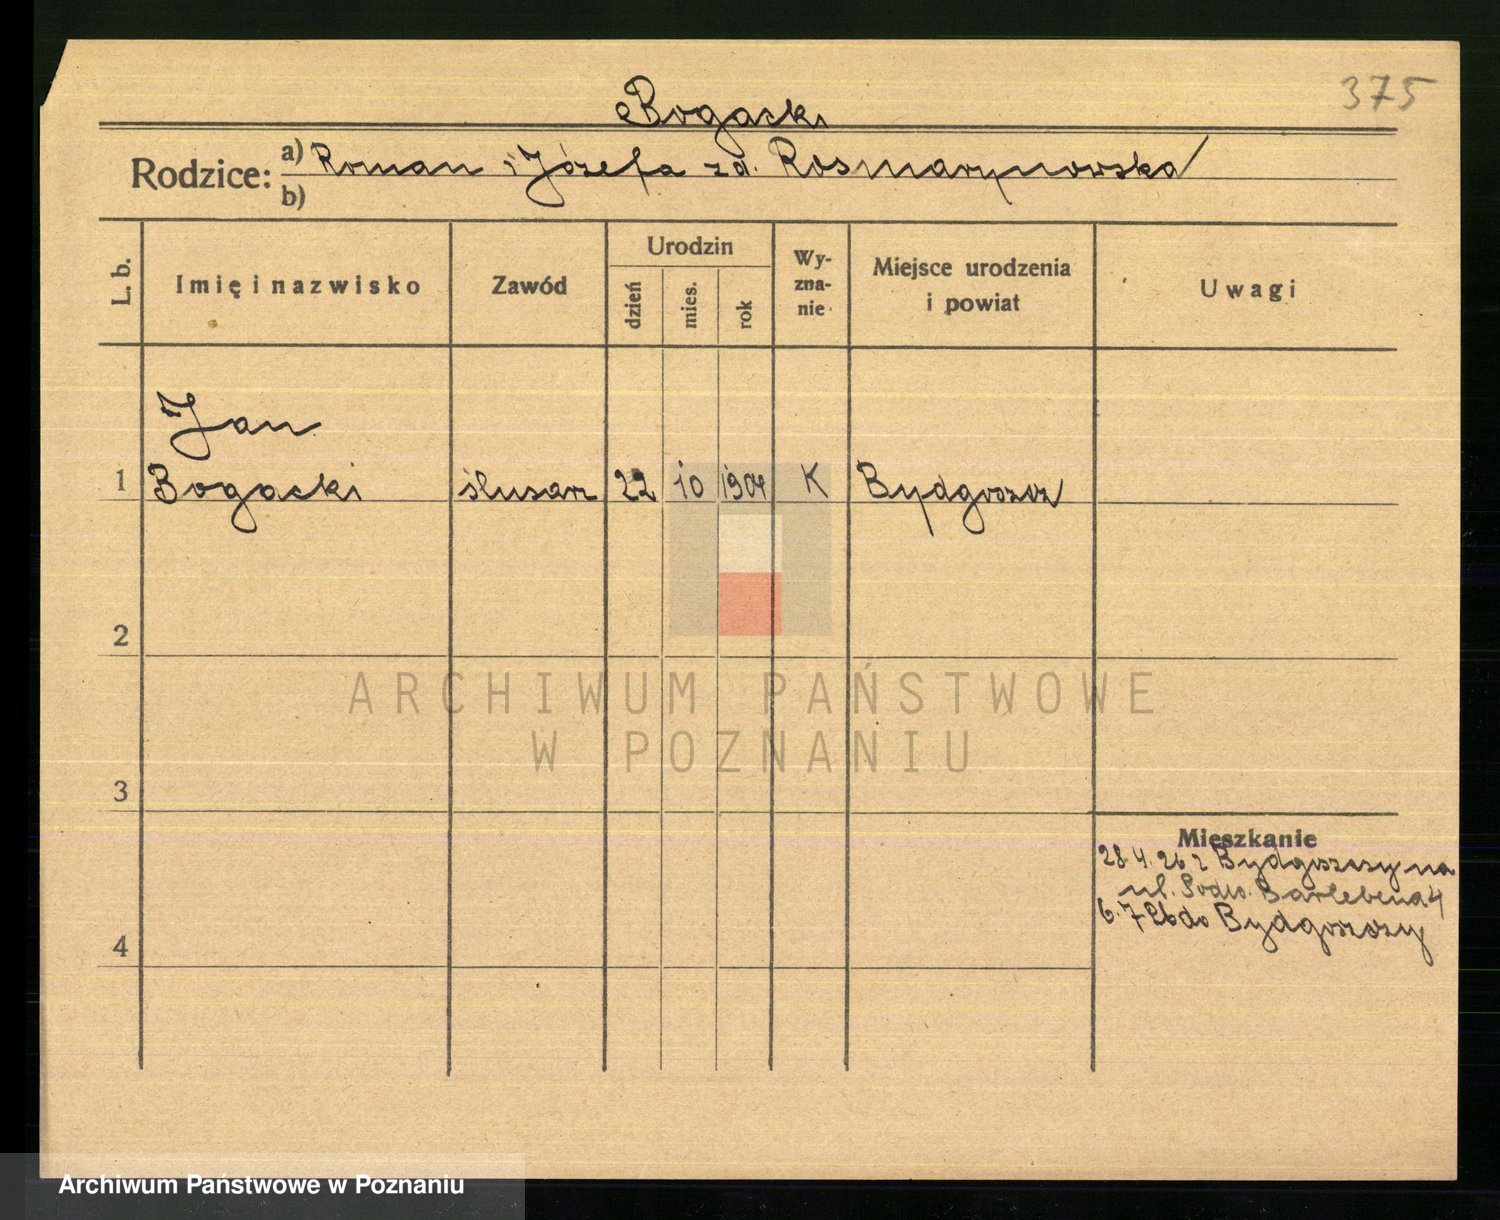 375
Bogacki
Rodzice: a) Roman i Józefa zd. Rosmarynowska
b)
L. b.
Imię i nazwisko
Zawód
Urodzin
dzień
mies.
rok
Wy-
zna-
nie
Miejsce urodzenia
i powiat
Uwagi
Jan
1 Bogacki ślusarz 22 10 1904 K Bydgoszcz
2
3
4
Mieszkanie
28.4.26 z Bydgoszczy na
ul. Barlebena 4
6.7 26 do Bydgoszczy
ARCHIWUM PAŃSTWOWE
W POZNANIU
Archiwum Państwowe w Poznaniu